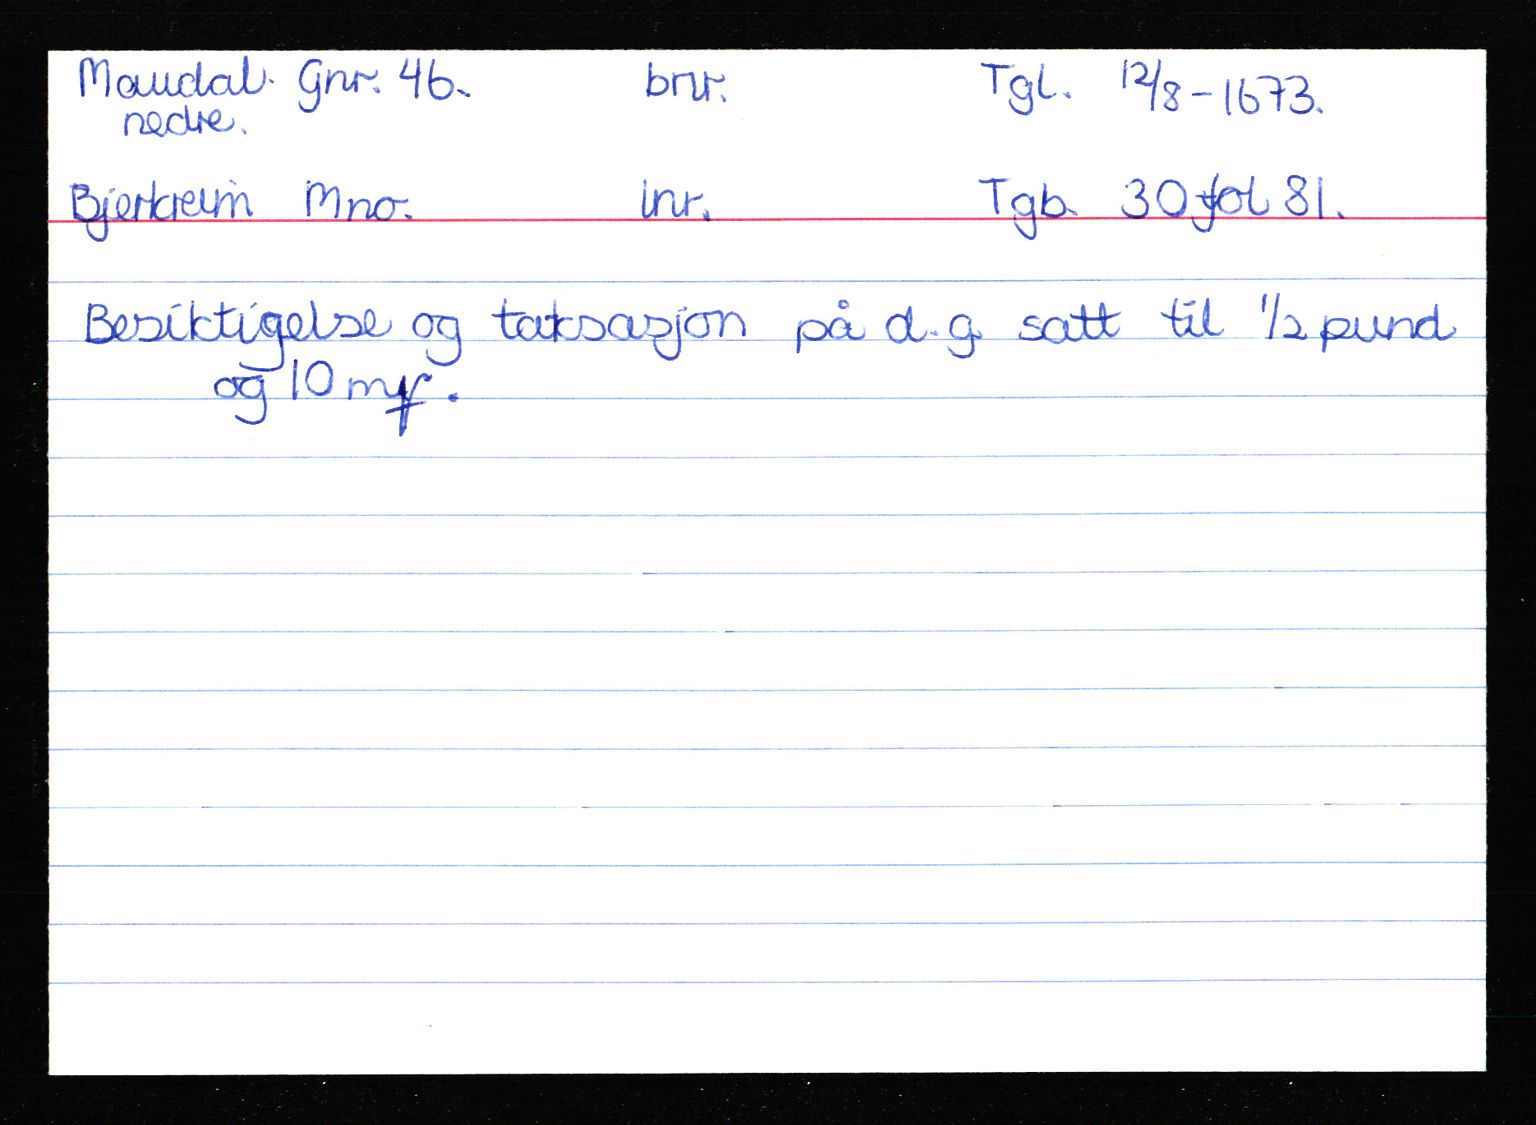 Maudal Gnr. 46. bnr. Tgl. 12/8-1673.
nedre.
Bjerkreim Mno. lnr. Tgb. 30 fol 81.
Besiktigelse og taksasjon på d.g. satt til 1/2 pund
og 10